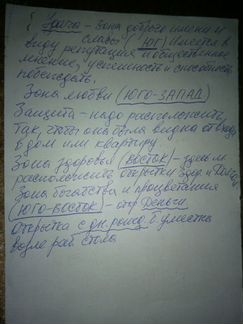 - зона доброго имени и
славы (ЮГ) Имеется в
виду репутация, общественное
мнение, успешность и способность
побеждать.
Зона любви (ЮГО-ЗАПАД)
Защита - надо расположить
так, чтобы она была видна от входа
в дом или квартиру.
Зона здоровья (ВОСТОК) - здесь
расположить открытки Здор. и
Зона богатства и процветания
(ЮГО-ВОСТОК) - откр Деньги
Открытка с дн. рожд. уместна
возле раб стола